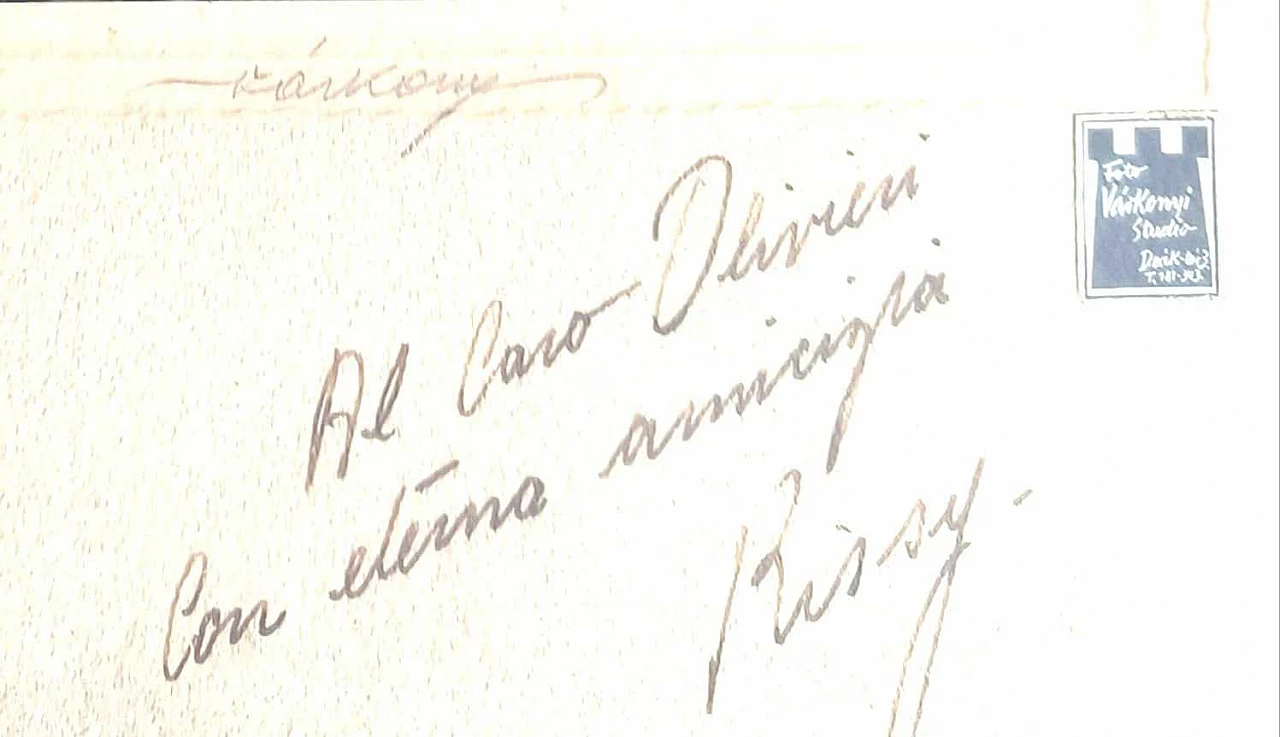 Várkonyi
Al Caro Olivieri
Con eterna amicizia
Rissy
Foto
Várkonyi
Studio
Deák-tér 3.